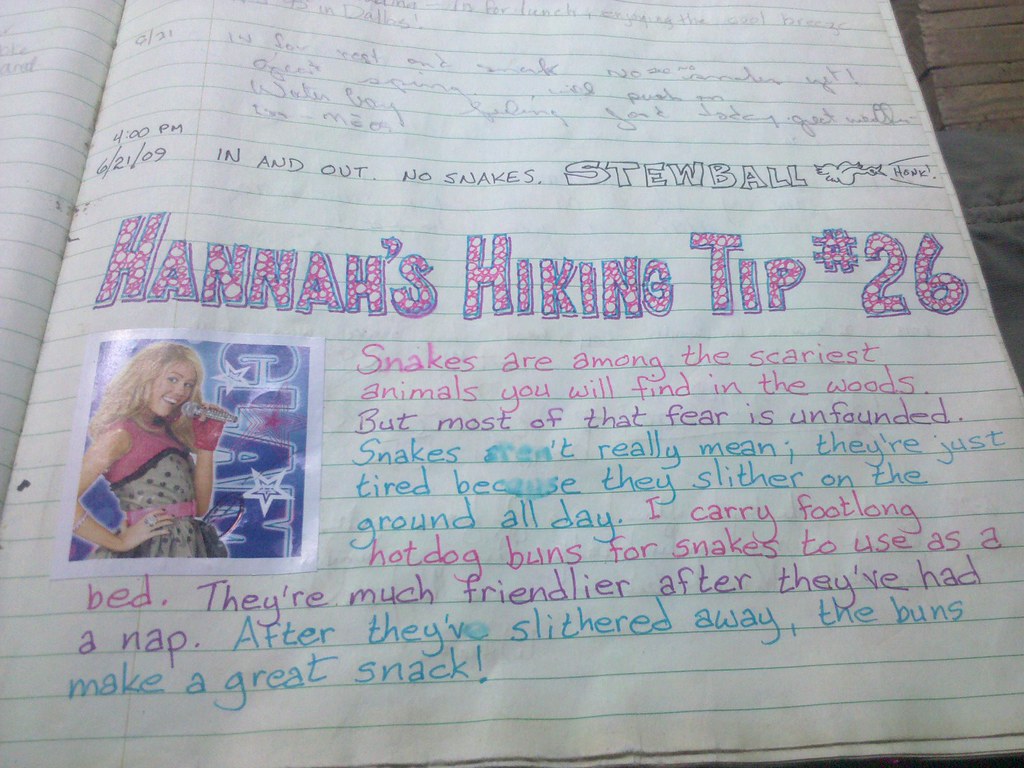 in for lunch, enjoying the cool breeze
in Dalbs!
6/21 IN for rest and snack NO
again. will push on
Water boy
4:00 PM
6/21/09 IN AND OUT. NO SNAKES. STEWBALL HONK!
HANNAH'S HIKING TIP #26
GLAM
Snakes are among the scariest
animals you will find in the woods.
But most of that fear is unfounded.
Snakes aren't really mean; they're just
tired because they slither on the
ground all day. I carry footlong
hotdog buns for snakes to use as a
bed. They're much friendlier after they've had
a nap. After they've slithered away, the buns
make a great snack!